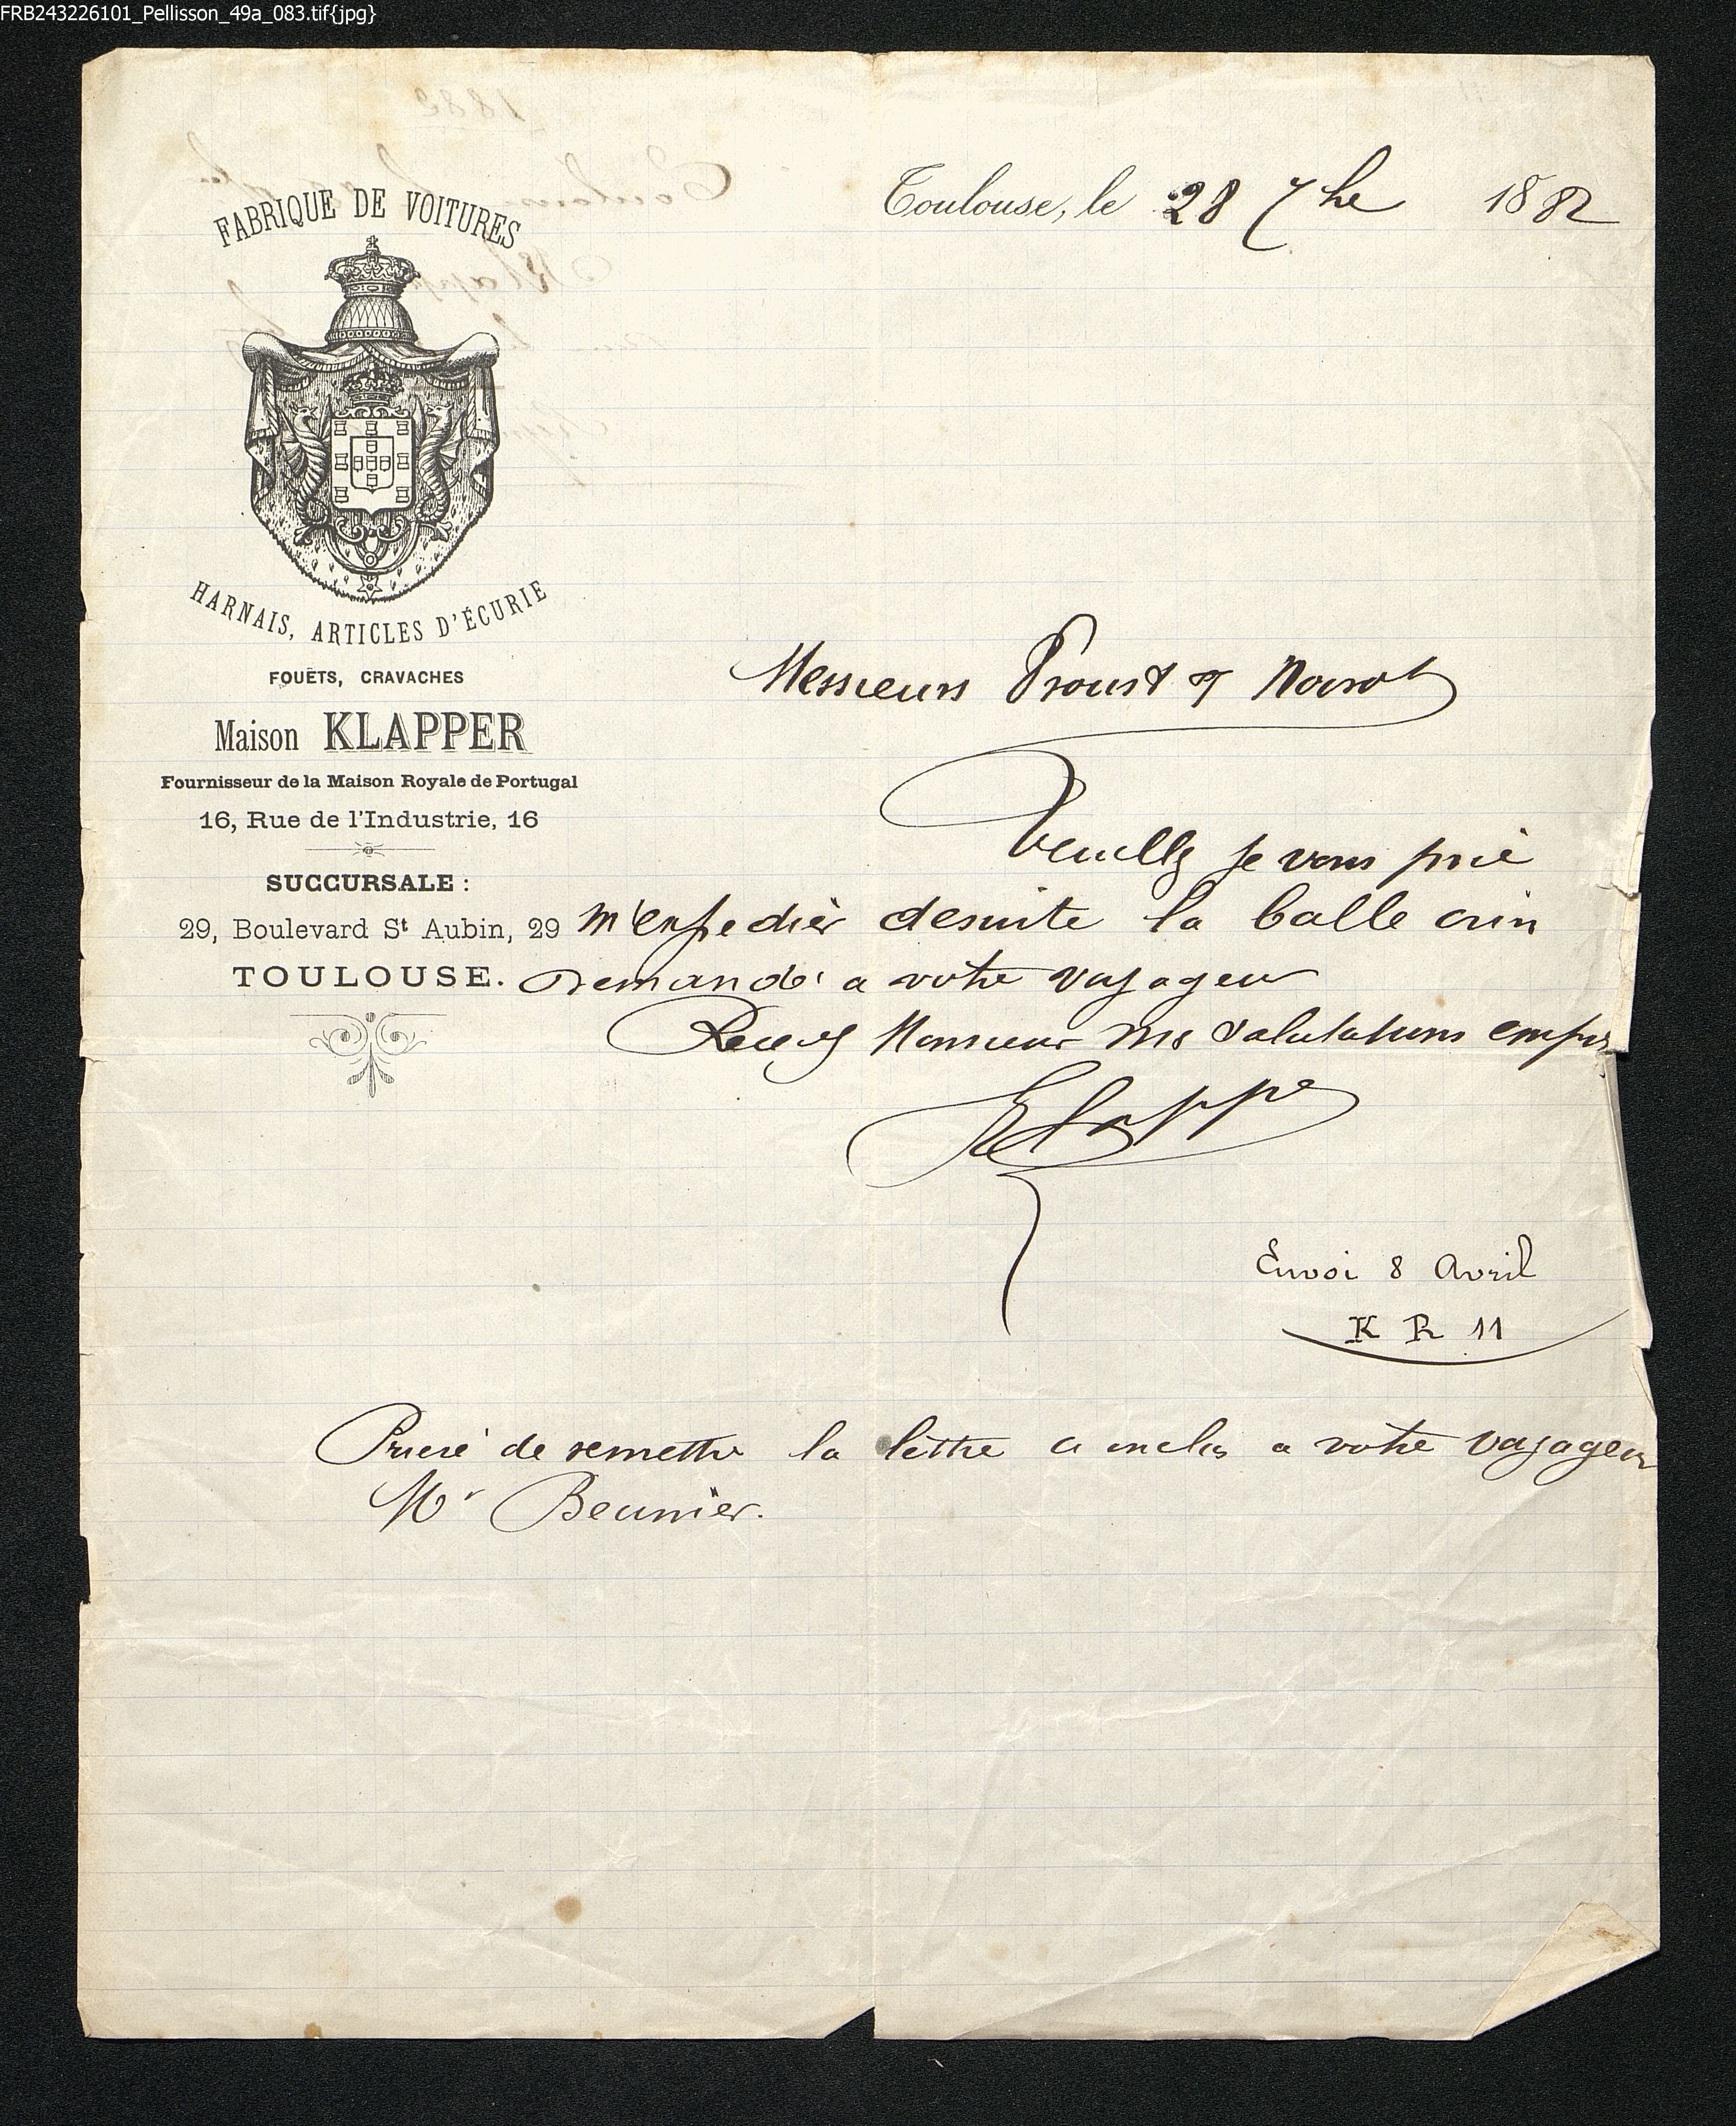 FRB243226101_Pellisson_49a_083.tif{jpg}
Toulouse, le 28 7bre 1882
FABRIQUE DE VOITURES
HARNAIS, ARTICLES D'ÉCURIE
FOUËTS, CRAVACHES
Maison KLAPPER
Fournisseur de la Maison Royale de Portugal
16, Rue de l'Industrie, 16
SUCCURSALE :
29, Boulevard St Aubin, 29
TOULOUSE.
Messieurs Proust & Noirot
Veuillez je vous prie
m'expedièr desuite la balle crin
demandé a votre voyageur
Recevez Monsieur mes salutations
Klapper
Envoi 8 Avril
K R 11
Prieré de remettre la lèttre ci inclus a votre voyageur
Mr Beunier.